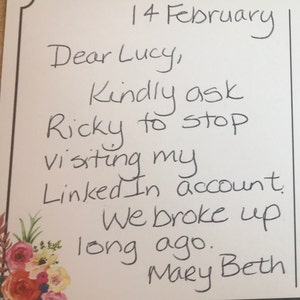 14 February
Dear Lucy,
Kindly ask
Ricky to stop
visiting my
LinkedIn account.
We broke up
long ago.
Mary Beth